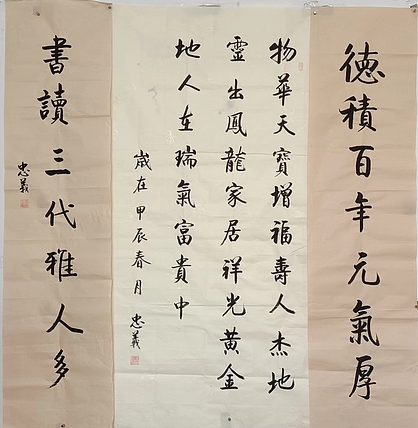 德積百年元氣厚
物華天寶增福壽人杰地
靈出鳳龍家居祥光黃金
地人在瑞氣富貴中
歲在甲辰春月
忠義
書讀三代雅人多
忠義